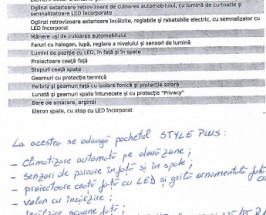 Oglinzi retrovizoare exterioare de culoarea automobilului, cu lumină de curtoazie și
semnalizator LED încorporate
Oglinzi retrovizoare exterioare încălzite, reglabile și rabatabile electric, cu semnalizator cu
LED încorporat
Mânere uși de culoarea automobilului
Faruri cu halogen, lupă, reglare a nivelului și senzor de lumină
Lumini de poziție cu LED, în față și în spate
Proiectoare ceață față
Stopuri ceață spate
Geamuri cu protecție termică
Parbriz și geamuri față cu izolare fonică și protecție solară
Lunetă și geamuri spate întunecate și cu protecție "Privacy"
Bare de amarare, argintii
Eleron spate, cu stop cu LED încorporat
La acestea se adaugă pachetul STYLE PLUS:
- climatizare automată pe două zone;
- senzori de parcare în față și în spate;
- proiectoare ceață față cu LED și grilă ornamentală față
- volan cu încălzire;
- încălzire scaune față;